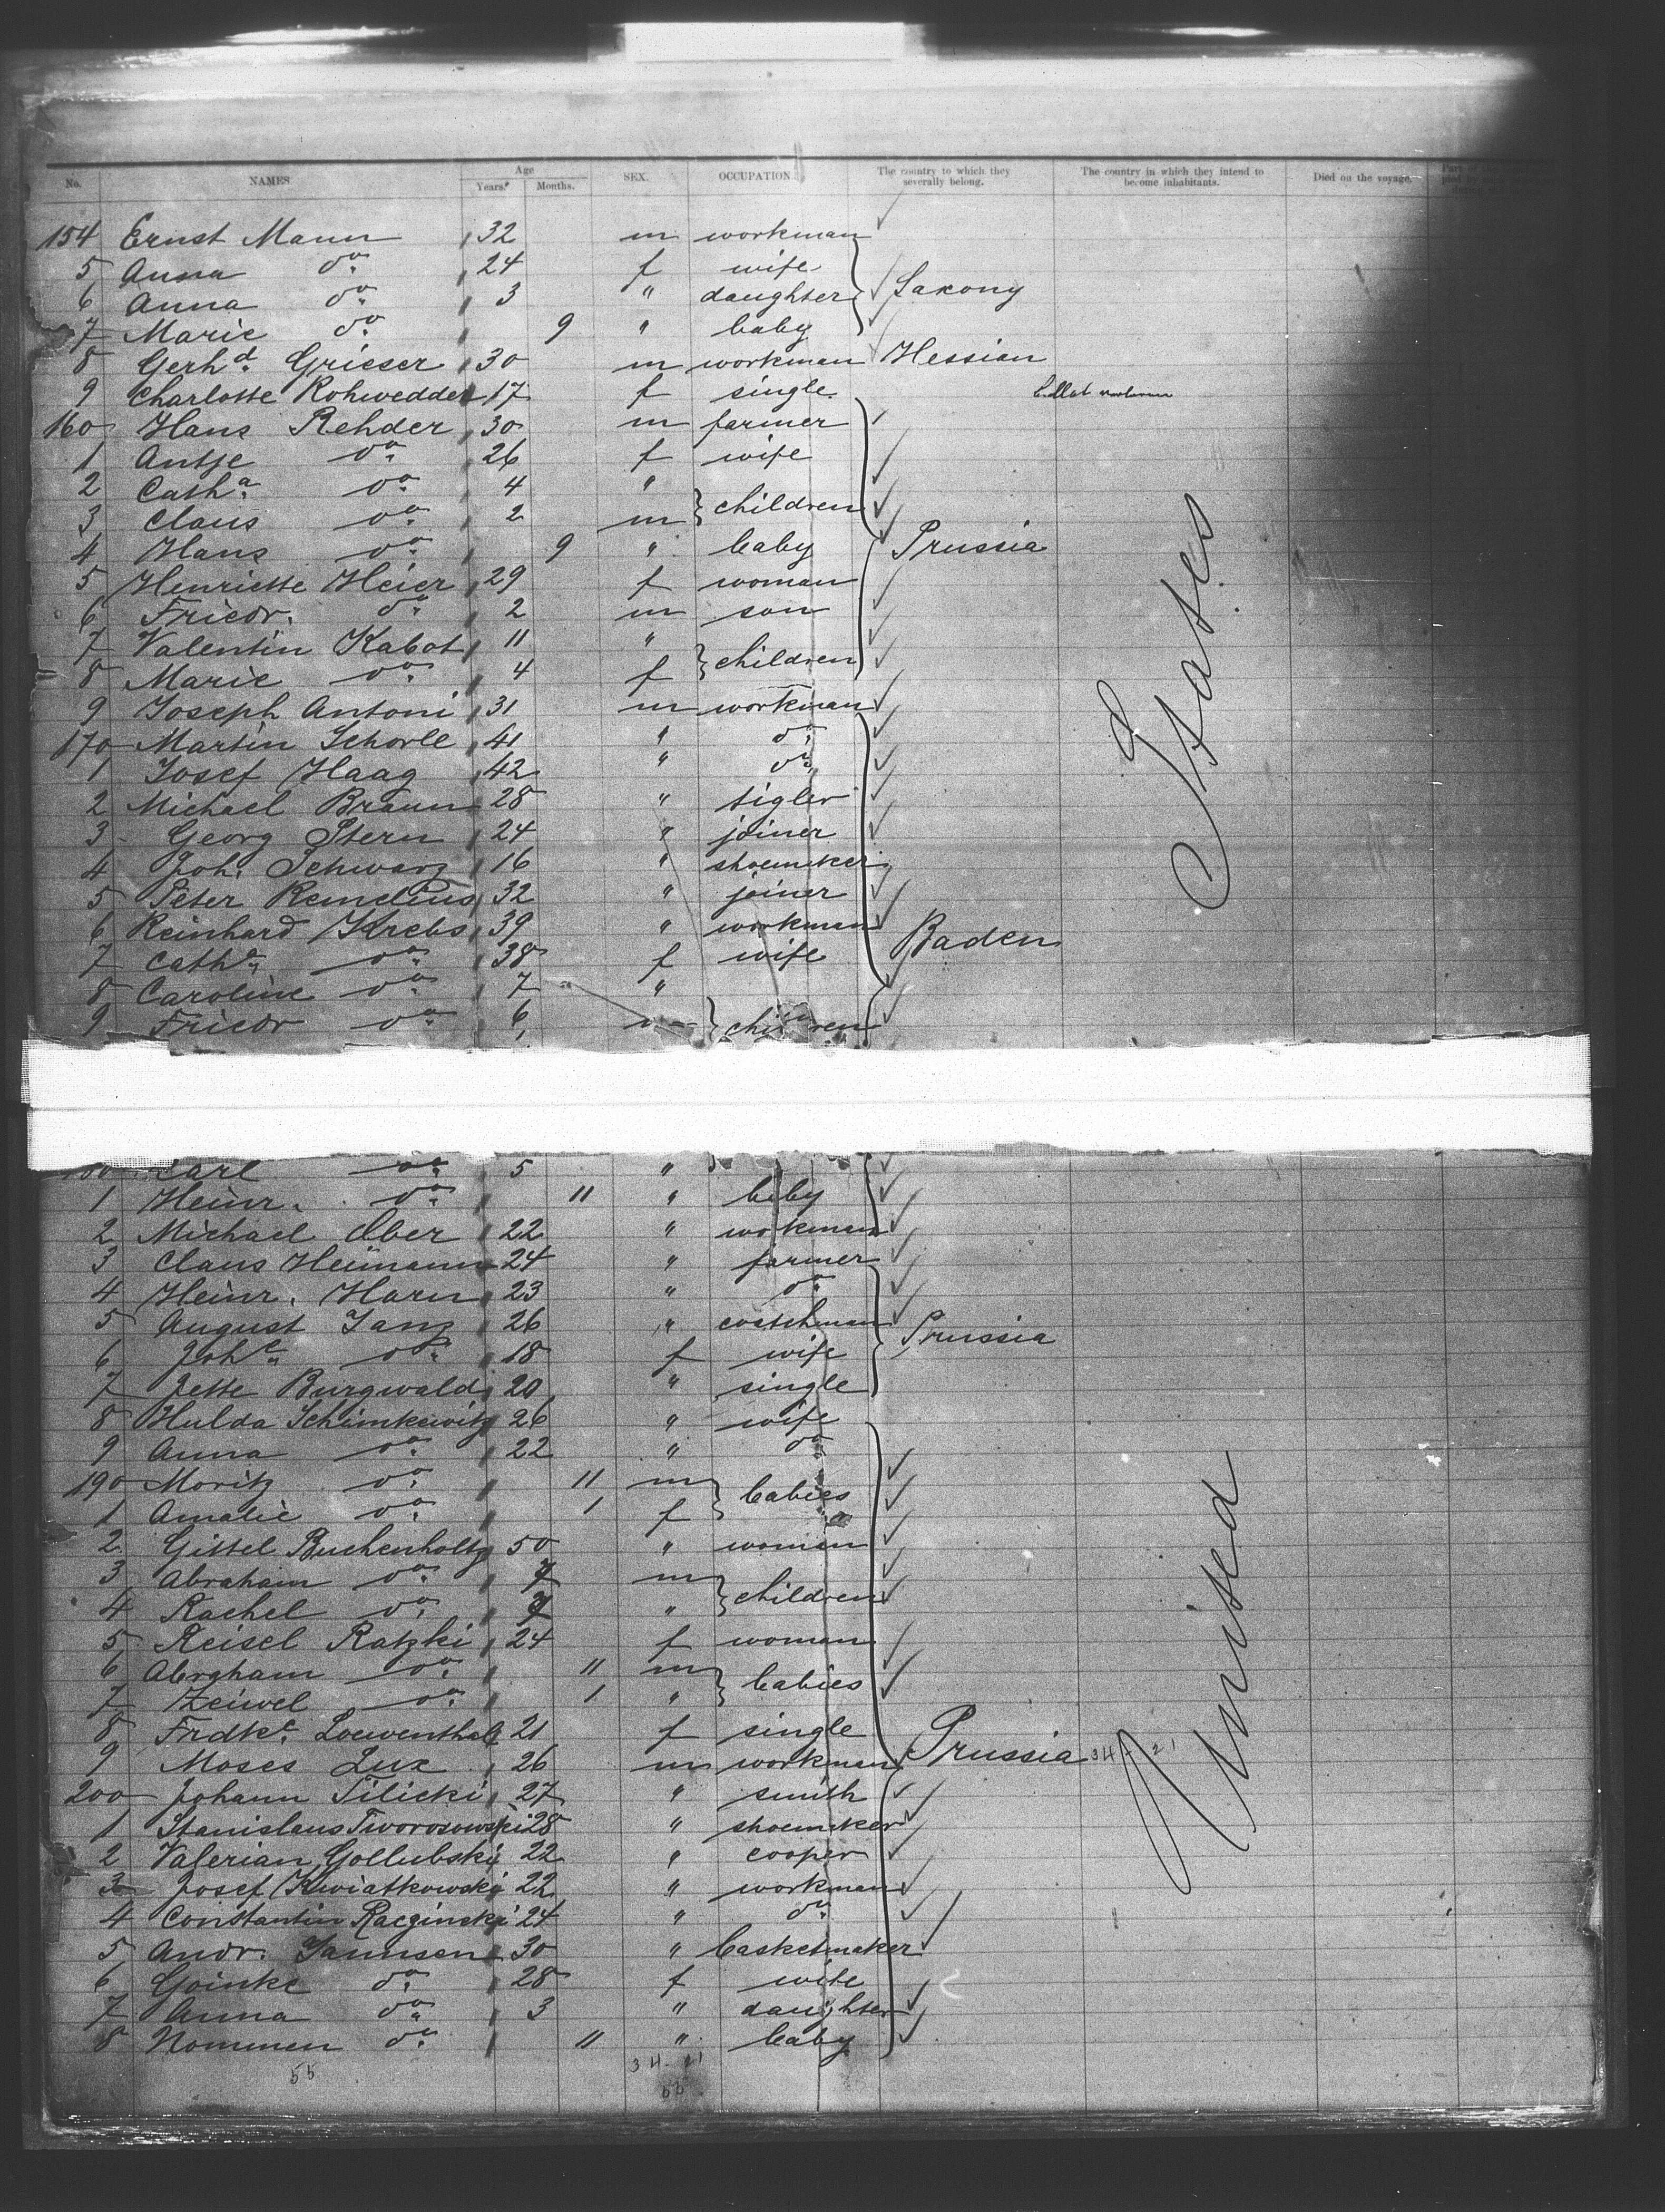 No. NAMES Age Years. Months. SEX. OCCUPATION. The country to which they severally belong. The country in which they intend to become inhabitants. Died on the voyage.
154 Ernst Mann 32 m workman
5 Anna do. 24 f wife
6 Anna do. 3 " daughter Saxony
7 Marie do. 9 " baby
8 Gerhd. Grieser 30 m workman Hessian
9 Charlotte Rohwedder 17 f single
160 Hans Rehder 30 m farmer
1 Antje do. 26 f wife
2 Catha. do. 4 "
3 Claus do. 2 m children
4 Hans do. 9 " baby Prussia
5 Henriette Heier 29 f woman
6 Friedr. do. 2 m son
7 Valentin Kabot 11 "
8 Marie do. 4 f children
9 Joseph Antoni 31 m workman
170 Martin Schorle 41 " do.
1 Josef Haag 42 " do.
2 Michael Braun 28 " tigler
3 Georg Stern 24 " joiner
4 Joh. Schwarz 16 " shoemaker
5 Peter Remelius 32 " joiner
6 Reinhard Krebs 39 " workman Baden
7 Cathe. do. 38 f wife
8 Caroline do. 7 "
9 Friedr do. 6 children
States
180 Carl do. 5 "
1 Heinr. do. 11 " baby
2 Michael Ober 22 " workman
3 Claus Heimann 24 " farmer
4 Heinr. Harn 23 " do.
5 August Janz 26 " coatchman Prussia
6 Johe. do. 18 f wife
7 Jette Burgwald 20 " single
8 Hulda Schimkewitz 26 " wife
9 Anna do. 22 " do.
190 Moritz do. 11 m
1 Amalie do. 1 f babies
2 Gittel Buchenholtz 50 " woman
3 Abraham do. m
4 Rachel do. " children
5 Reisel Ratzki 24 f woman
6 Abraham do. 11 m
7 Zeiwel do. 1 " babies
8 Frdke. Loewenthal 21 f single
9 Moses Lux 26 m workman Prussia 34 - 21
200 Johann Tilicki 27 " smith
1 Stanislaus Tworosowski 28 " shoemaker
2 Valerian Gollubski 22 " cooper
3 Josef Kwiatkowski 22 " workman
4 Constantin Raczinski 24 " do.
5 Andr. Jannsen 30 " basketmaker
6 Goinke do. 28 f wife
7 Anna do. 3 " daughter
8 Nommen do. 11 " baby
United
55 34 - 21
55